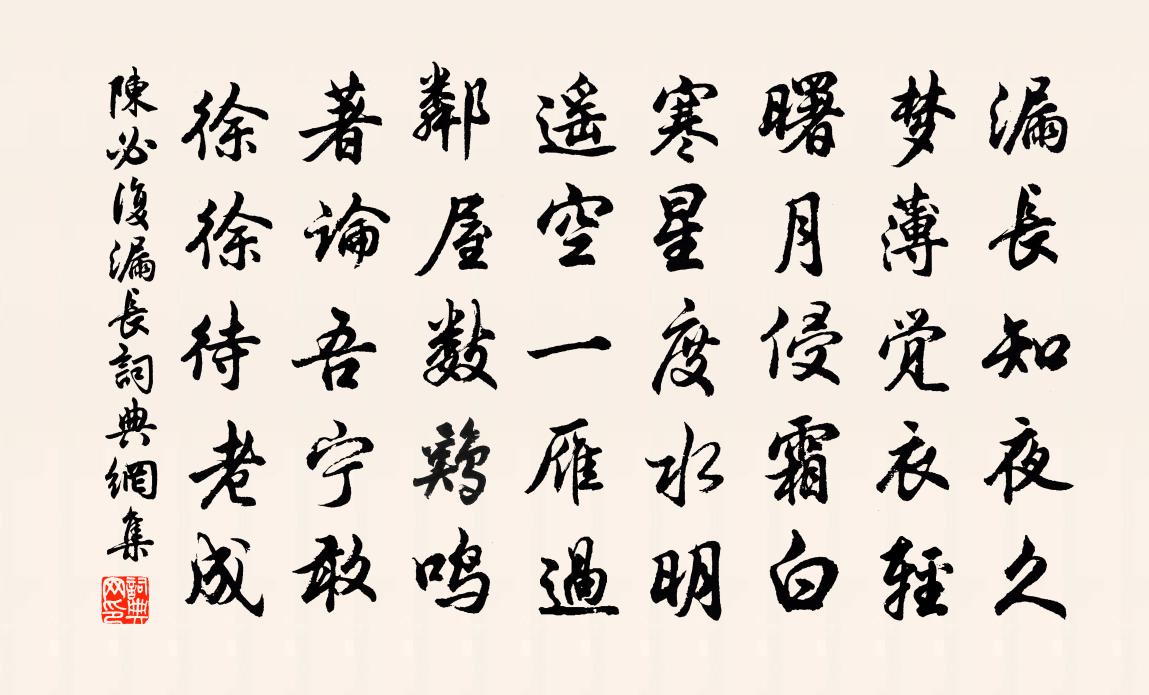 漏長知夜久
梦薄覚衣輕
曙月侵霜白
寒星度水明
遥空一雁過
鄰屋数鶏鳴
著論吾宁敢
徐徐待老成
陳必復漏長詞典網集
詞典
网印